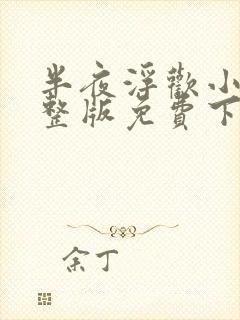 半夜浮歡小
整版免費下
余丁